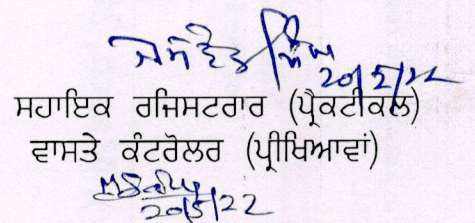 ਜਸਵੰਤ ਸਿੰਘ
20/5/22
ਸਹਾਇਕ ਰਜਿਸਟਰਾਰ (ਪ੍ਰੈਕਟੀਕਲ)
ਵਾਸਤੇ ਕੰਟਰੋਲਰ (ਪ੍ਰੀਖਿਆਵਾਂ)
20/5/22